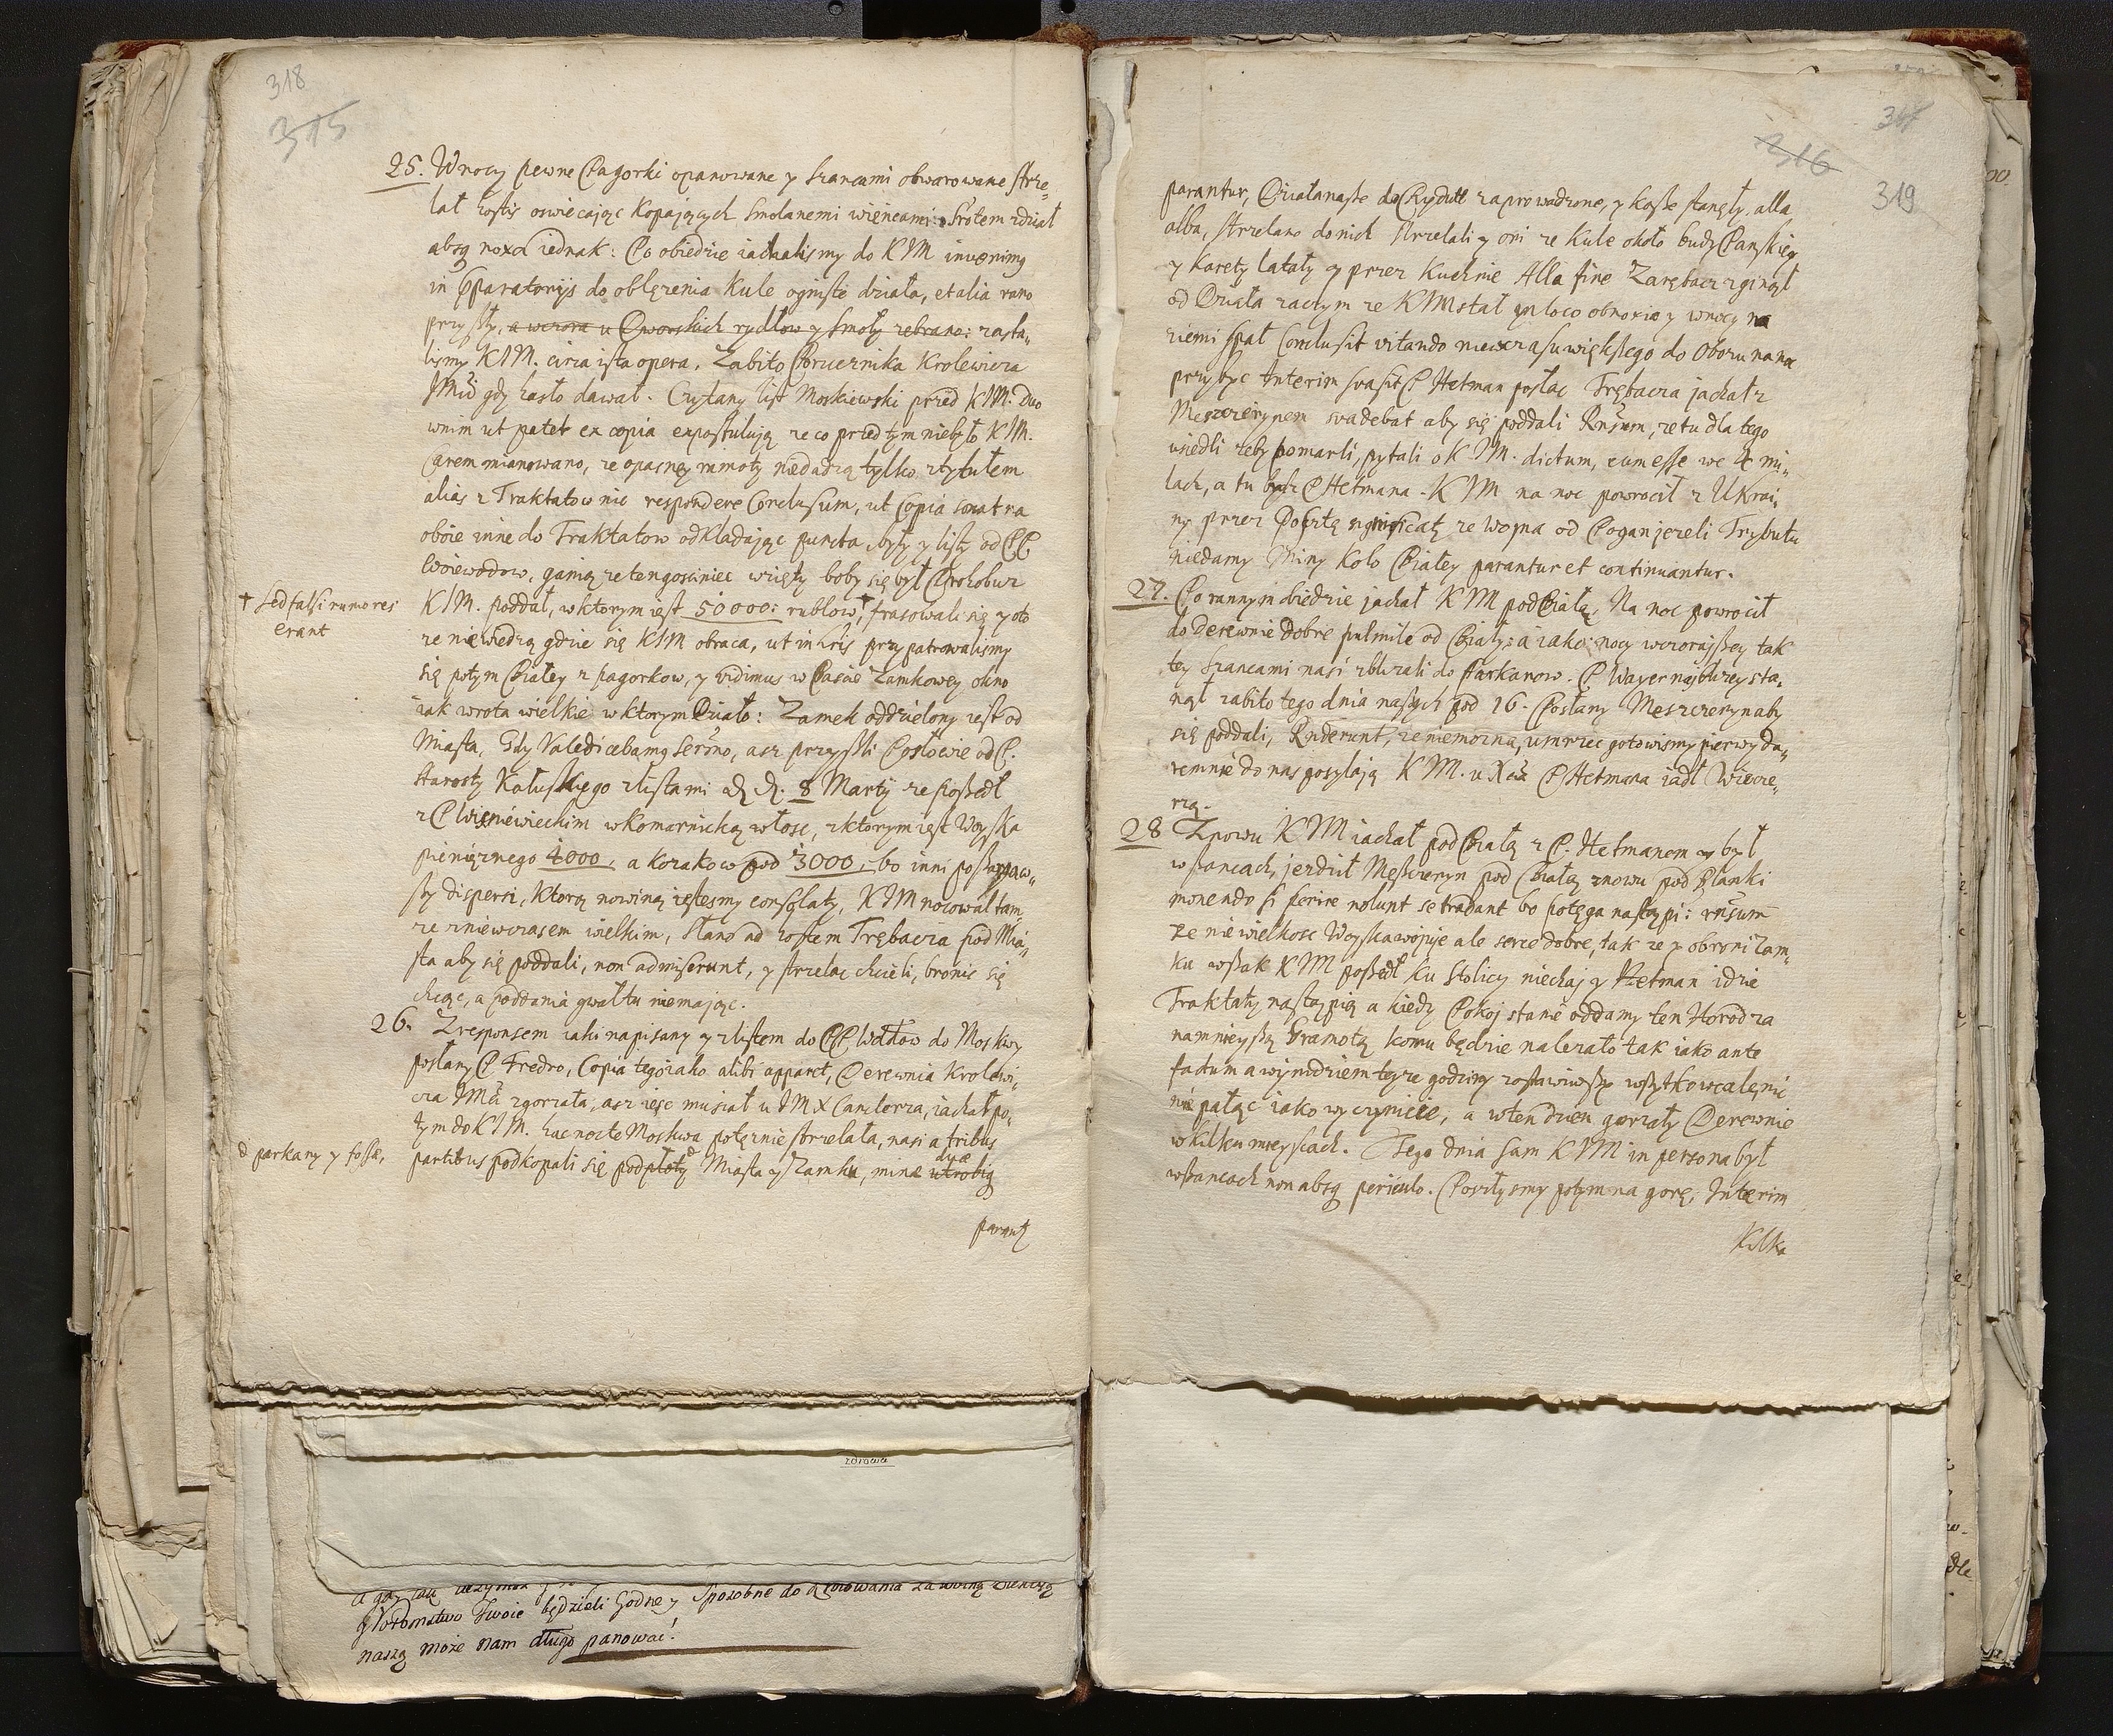 318
315
25. W nocy pewne Pagorki opanowane y szancami obwarowane strze-
lał hostis oswiecaiąc kopaiących smolanemi wieńcami: Srotem z dział
absq noxa iednak: Po obiedzie iachalismy do KIM invenimq
in pparatorijs do oblęzenia kule ogniste działa, et alia rano
przyszły, a wczora u Dworskich rydlow y smoły zebrano: zasta-
lismy KIM. circa ista opera. Zabito Porucznika Krolewica
JMci gdy hasło dawał. Czytany list Moskiewski przed KIM. Duo
w nim ut patet ex copia expostulują ze co przed tym niebyło KIM.
Carem mianowano, ze opasney ramoty nie dadzą tylko z tytułem
alias z Traktatow nic respondere Conclusum, ut Copia sonat na
oboie inne do Traktatow odkladaiąc puncta, były y listy od PP.
Woiewodow, ganią ze ten gosciniec wzięty boby się był Drohobuz
† sed falsi rumores
erant
KIM. poddał, w ktorym iest 50000: rublow,† frasowali się y oto
ze niewiedzą gdzie się KIM obraca, ut in lris przypatrowalismy
się potym Białey z pagorkow, y vidimus w Baście Zamkowey okno
iak wrota wielkie w ktorym Działo: Zamek oddzielony iest od
Miasta, Gdy Valedicebamq Sermo, asz przyszli Posłowie od P.
Starosty Kałuskiego z listami dd. 8 Martij ze poszedł
z P Wisniewieckim w Komarnicką włosc, z ktorym iest Woyska
pienięznego 4000, a Kozakow pod 3000, bo inni
szy dispersi, ktorą nowiną iestesmy consolaty, KIM nocował tam-
ze z niewczasem wielkim, słano ad hostem Trębacza pod Mia-
sta aby się poddali, non admiserunt, y strzelac chcieli, bronic się
chcąc, a poddania gwałtu niemaiąc.
26. Z responsem iaki napisany y z listem do PP Wdow do Moskwy
posłany P Fredro, Copia tego iako alibi apparet, Derewnia Krolewi-
cza JMci zgorzała, asz iesc musiał u JMX Canclerza, iachał po-
tym do KIM. hac nocte Moskwa potęznie strzelała, nasi a tribus
đ parkany y fossæ,
partibus podkopali się pod płoty đ Miasta y Zamku, minæ utrobiq duæ
parantz
316
317
319
parantur, Działa nasze do Rydut zaprowadzone, y kosze stanęły, alla
alba, strzelano do nich strzelali y oni ze kule około budy Panskiey
y karety latały y przez kuchnie Alla fine Zarębacz zginął
od Działa zaczym ze KIM stał in loco obnoxio y w nocy na
ziemi spał Conclusit vitando niewczasu większego do Obozu na noc
przybyc Interim suasit P Hetman posłac Trębacza jachał z
Meszczerynem suadebat aby się poddali Rnsum, ze tu dla tego
usiedli zeby pomarli, pytali o K IM. dictum, eum esse we 4 mi-
lach, a tu bydz P Hetmana. KIM na noc powrocił z Ukrai-
ny przez Posztę significatq ze woyna od Pogan jezeli Trybutu
niedamy Miny koło Białey parantur et continuantur.
27. Po rannym obiedzie jachał KIM pod Białą, Na noc powrocił
do derewnie dobre pulmile od Biały: a iako nocy wczorajszey tak
tey szancami nasi zblizali do Parkanow. P Wayer najblizey sta-
nął zabito tego dnia naszych pod 16. Posłany Meszczeryn aby
się poddali, Rnderunt, ze niemozna, umrzec gotowismy pierwy da-
remnie do nas posylają KIM. u Xcia P Hetmana iadł Wiecze-
rzą.
28 Znowu KIM iachał pod Białą z P. Hetmanem y był
w szancach, jezdził Meszczeryn pod Białą znowu pod Blanki
monendo si ferire nolunt se tradant bo potęga nastąpi: rnsum
ze nie wielkosc Woyska wojuje ale serce dobre, tak ze y obroni Zam-
ku wszak KIM poszedł ku Stolicy niechaj y Hetman idzie
Traktaty nastąpią a kiedy Pokoj stanie oddamy ten Horod za
namnieyszą Hramotą komu będzie nalezało tak iako ante
factum a wynidziem teyze godziny zostawiwszy wszytko wcale, nic
nie paląc iako wy czynicie, a w ten dzien gorzały Derewnie
w kilku mieyscach. Tego dnia sam KIM in persona był
w szancach non absq periculo. Poszlysmy potym na gorę; Interim
Kilka
zdrowia
y Potomstwo Twoie będzieli Godne y Sposobne do
naszą moze nam długo panowac!